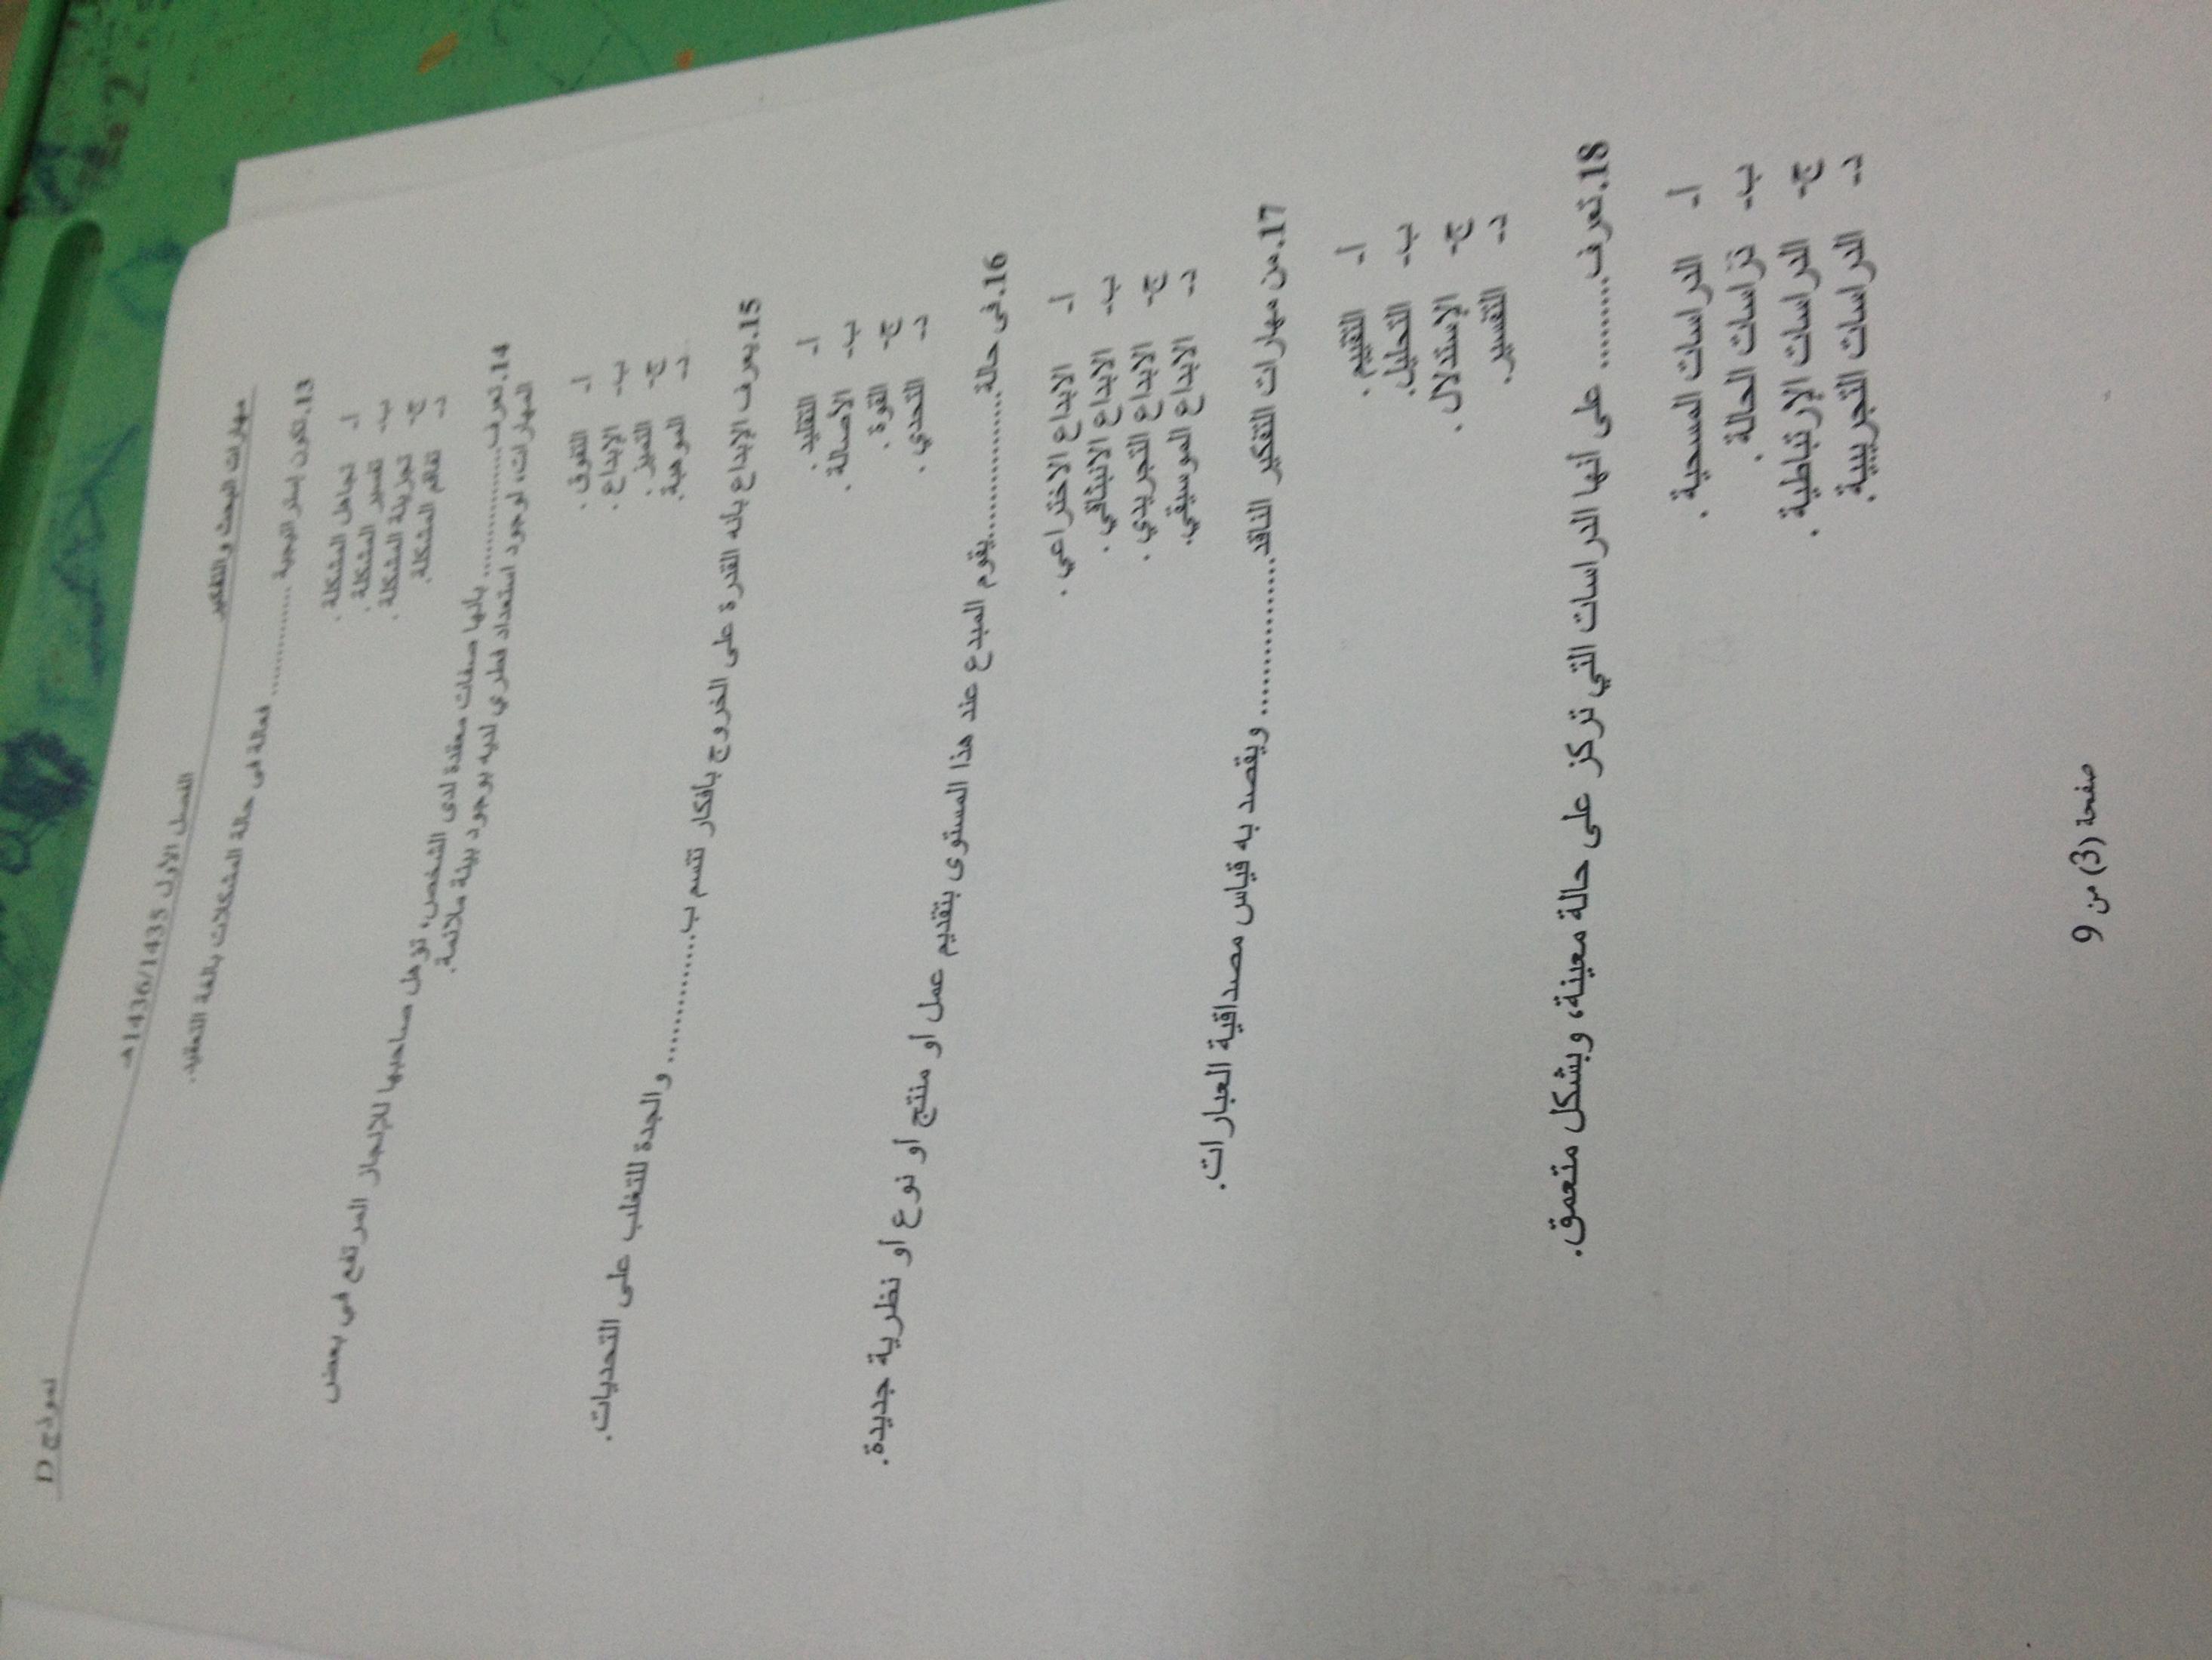 مهارات البحث والتفكير
الفصل الأول 1436/1435هـ
نموذج D
13. تكون إستراتيجية ............ فعالة في حالة المشكلات بالغة التعقيد.
أ- تجاهل المشكلة .
ب- تفسير المشكلة .
ج- تجزيئة المشكلة .
د- تفاقم المشكلة.
14. تعرف............ بأنها صفات معقدة لدى الشخص، تؤهل صاحبها للإنجاز المرتفع في بعض
المهارات، لوجود استعداد فطري لديه بوجود بيئة ملائمة.
أ- التفوق .
ب- الإبداع .
ج- التميز .
د- الموهبة.
15. يعرف الإبداع بأنه القدرة على الخروج بأفكار تتسم ب............ والجدة للتغلب على التحديات.
أ- التقليد .
ب- الأصالة .
ج- القوة .
د- التحدي .
16. في حالة............يقوم المبدع عند هذا المستوى بتقديم عمل أو منتج أو نوع أو نظرية جديدة.
أ- الابداع الاختراعي .
ب- الابداع الانبثاقي .
ج- الابداع التجريدي .
د- الابداع الموسيقي.
17. من مهارات التفكير الناقد............ ويقصد به قياس مصداقية العبارات.
أ- التقييم .
ب- التحليل.
ج- الإستدلال .
د- التفسير.
18. تعرف.......... على أنها الدراسات التي تركز على حالة معينة، وبشكل متعمق.
أ- الدراسات المسحية .
ب- دراسات الحالة .
ج- الدراسات الإرتباطية .
د- الدراسات التجريبية.
صفحة (3) من 9